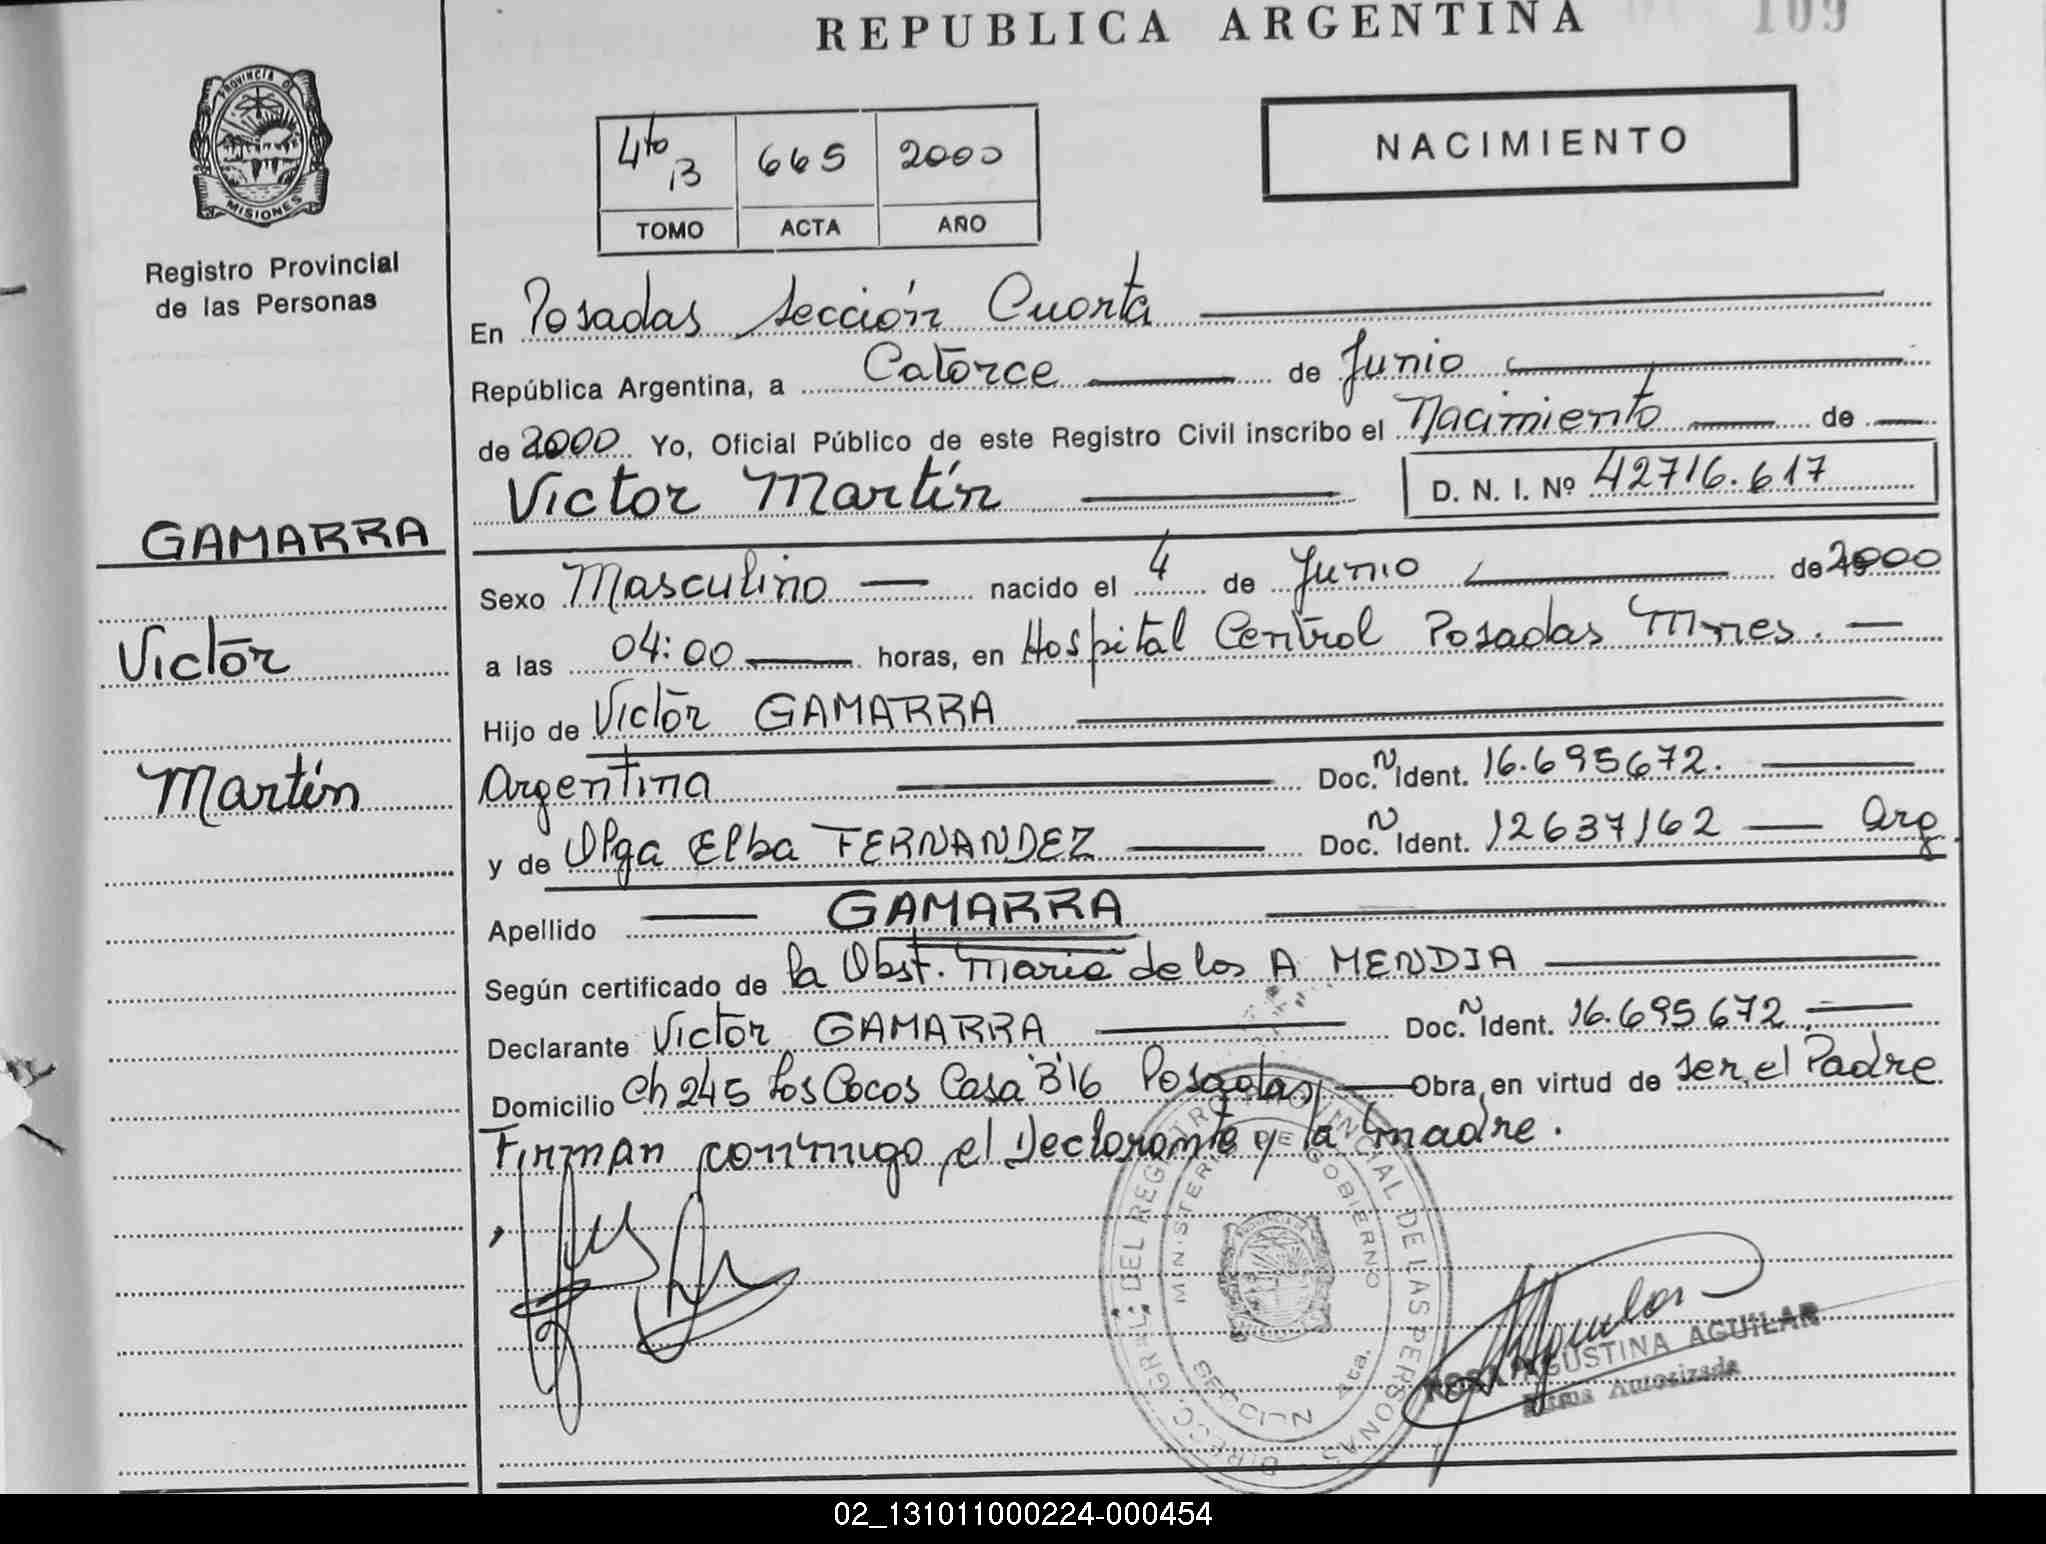 REPUBLICA ARGENTINA
109
PROVINCIA D
MISIONES
Registro Provincial
de las Personas
4to B 665 2000
TOMO ACTA AÑO
NACIMIENTO
En Posadas Sección Cuarta
República Argentina, a Catorce de Junio
de 2000 Yo, Oficial Público de este Registro Civil inscribo el Nacimiento de
Victor Martín D. N. I. Nº 42716.617
GAMARRA
Victor
Martín
Sexo Masculino nacido el 4 de Junio de 2000
a las 04:00 horas, en Hospital Central Posadas Mnes.
Hijo de Victor GAMARRA
Argentina Doc. N Ident. 16.695672.
y de Olga Elba FERNANDEZ Doc. N Ident. 12637162 Arg.
Apellido GAMARRA
Según certificado de la Obst. Maria de los A MENDIA
Declarante Victor GAMARRA Doc. N Ident. 16.695672
Domicilio Ch 245 Los Cocos Casa B'16 Posadas Obra en virtud de ser el Padre
Firman conmigo el Declarante y la madre.
DIRECC. GRAL. DEL REGISTRO PROVINCIAL DE LAS PERSONAS
MINISTERIO DE GOBIERNO
SECCION 4ta.
AGUSTINA AGUILAR
Firma Autorizada
02_131011000224-000454